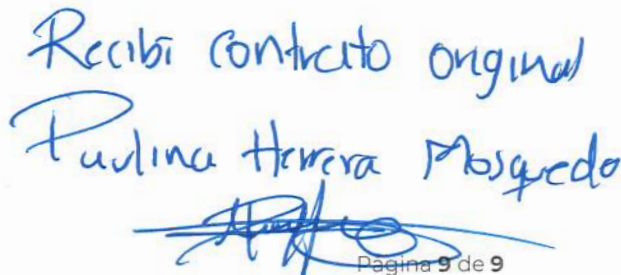 Recibi contrato original
Paulina Herrera Mosquedo
Página 9 de 9